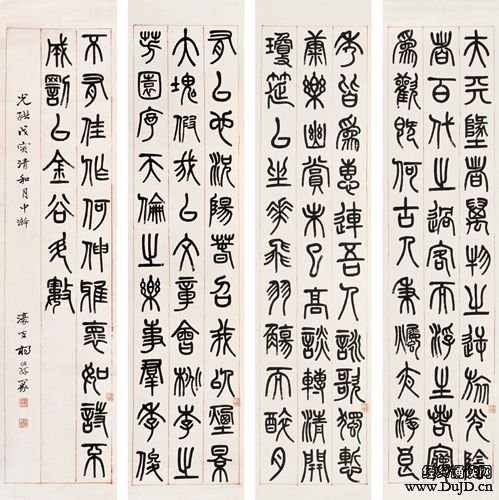 夫天墬者萬物之逆旅光陰
者百代之過客而浮生若夢
爲歡既何古人秉燭夜游良
秀皆爲惠連吾人詠歌獨慙
康樂幽賞未已高談轉清開
瓊筵以坐華飛羽觴而醉月
有以也況陽春召我以煙景
大塊假我以文章會桃李之
芳園序天倫之樂事羣季俊
不有佳作何伸雅褱如詩不
成罰以金谷酒數
光緒戊寅清和月中澣
濠叟楊沂孫篆
www.DujD.cn